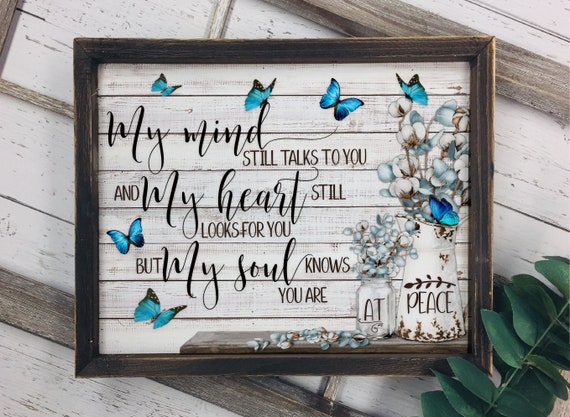 My mind
STILL TALKS TO YOU
AND My heart STILL
LOOKS FOR YOU
BUT My soul KNOWS
YOU ARE
AT
PEACE